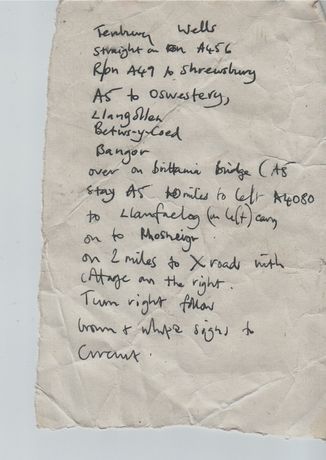 Tenbury Wells
straight on A456
R/on A49 to Shrewsbury
A5 to Oswestery,
Llangollen
Betws-y-Coed
Bangor
over on brittania Bridge (A5
stay A5 10 miles to left A4080
to Llanfaelog (on left) carry
on to
on 2 miles to X roads with
cottage on the right.
Turn right follow
brown & white signs to
Circuit.